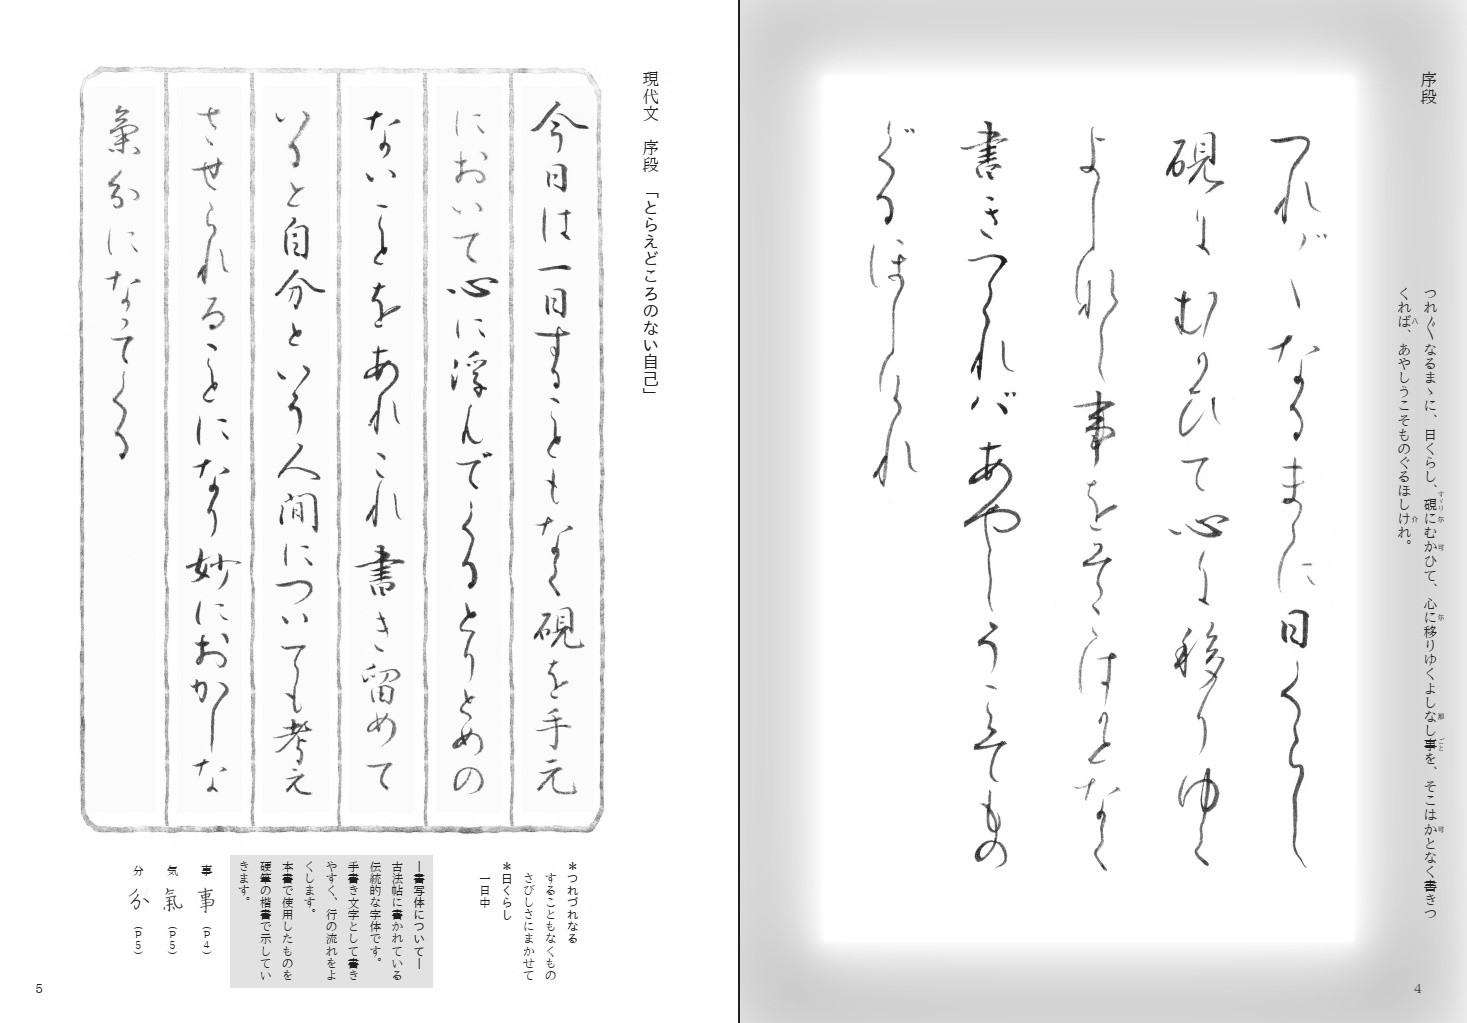 序段
つれ〴〵なるまゝに、日くらし、硯にむかひて、心に移りゆくよしなし事を、そこはかとなく書きつ
くれば、あやしうこそものぐるほしけれ。
つれバゝなるまゝに日くらし
硯尓むかひて心尓移りゆく
よしなし事をそこはかとなく
書きつくれバあやしうこそもの
ぐるほしけれ
4
現代文 序段 「とらえどころのない自己」
今日は一日することもなく硯を手元
において心に浮んでくるとりとめの
ないことをあれこれ書き留めて
いると自分という人間についても考え
させられることになり妙におかしな
氣分になってくる
＊つれづれなる
することもなくもの
さびしさにまかせて
＊日くらし
一日中
―書写体について―
古法帖に書かれている
伝統的な字体です。
手書き文字として書き
やすく、行の流れをよ
くします。
本書で使用したものを
硬筆の楷書で示してい
きます。
事 事 （P4）
気 氣 （P5）
分 分 （P5）
5